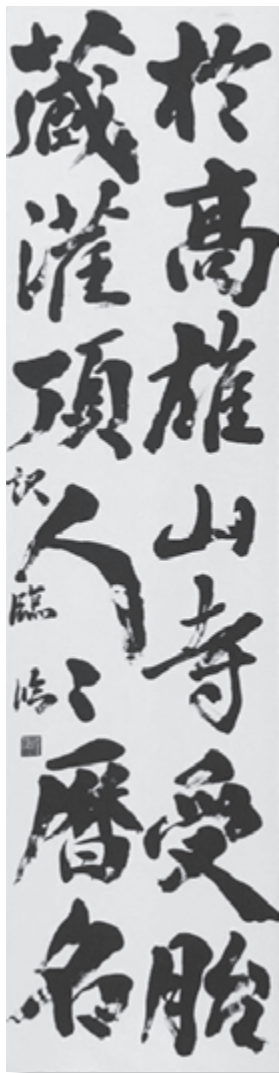 於高雄山寺受胎
藏灌頂人〻暦名
臨